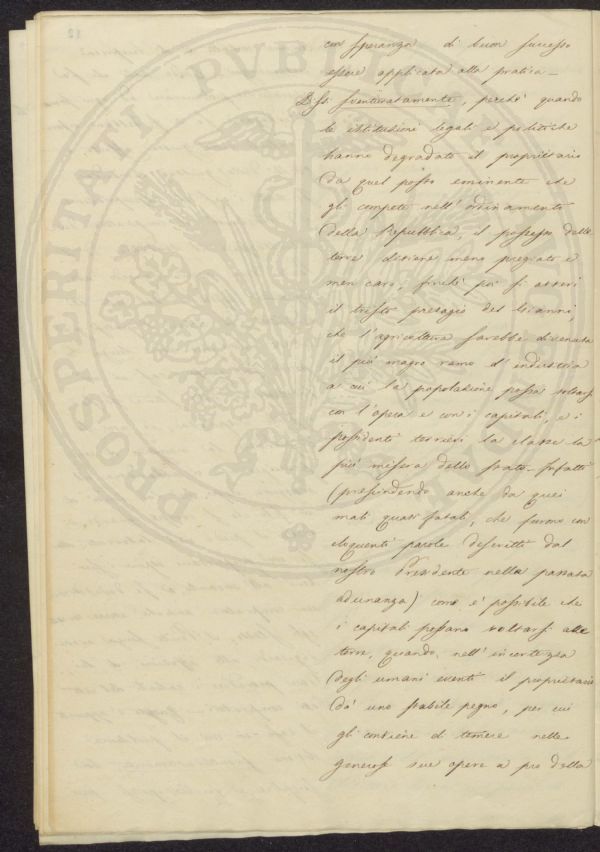 con speranza di buon successo
essere applicata alla pratica –
Dissi sventuratamente, perchè quando
le istituzioni legali e politiche
hanno degradato il proprietario
da quel posto eminente che
gli compete nell'ordinamento
della Repubblica, il possesso delle
terre diviene meno pregiato e
men caro, finchè poi si avveri
il tristo presagio del
che l'agricoltura sarebbe divenuta
il più magro ramo d'industria
a cui la popolazione possa voltarsi
con l'opera e con i capitali, e i
possidenti terrieri la classe la
più misera dello stato – Infatti
(prescindendo anche da quei
mali quasi fatali, che furono con
eloquenti parole descritti dal
nostro Presidente nella passata
adunanza) come è possibile che
i capitali possano voltarsi alle
terre, quando, nell'incertezza
degli umani eventi il proprietario
dà uno stabile pegno, per cui
gli conviene di temere nelle
generose sue opere a pro della
PROSPERITATI PVBLICAE